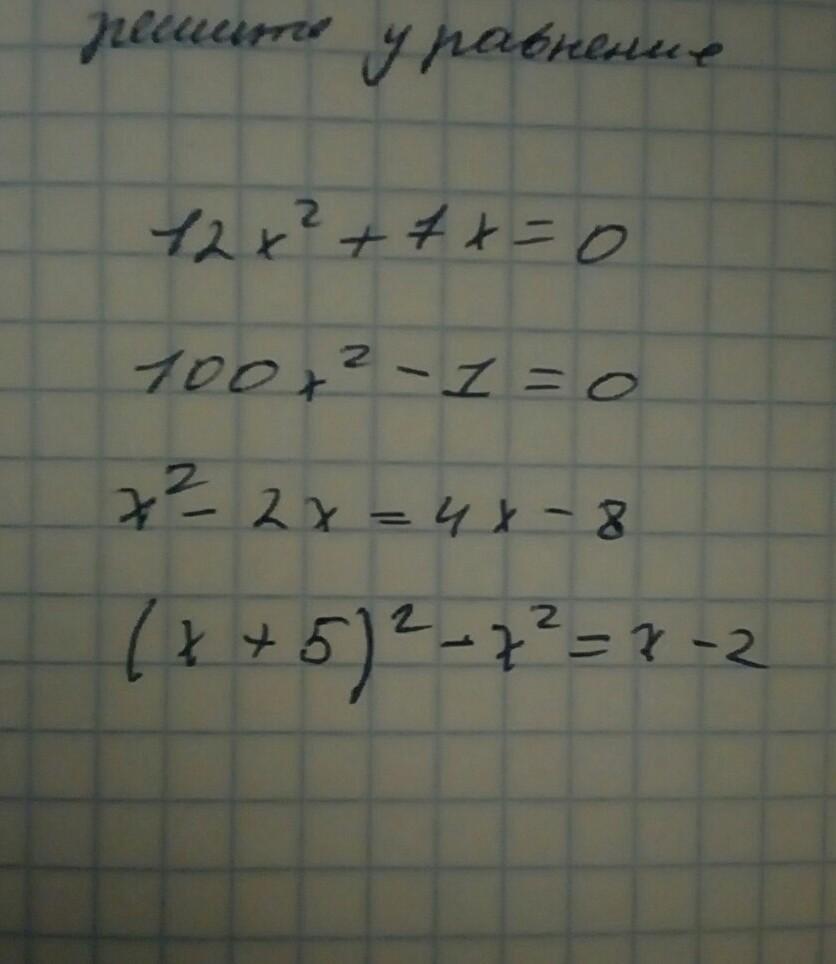 решите уравнение
12x² + 7x = 0
100x² - 1 = 0
x² - 2x = 4x - 8
(x + 5)² - x² = x - 2